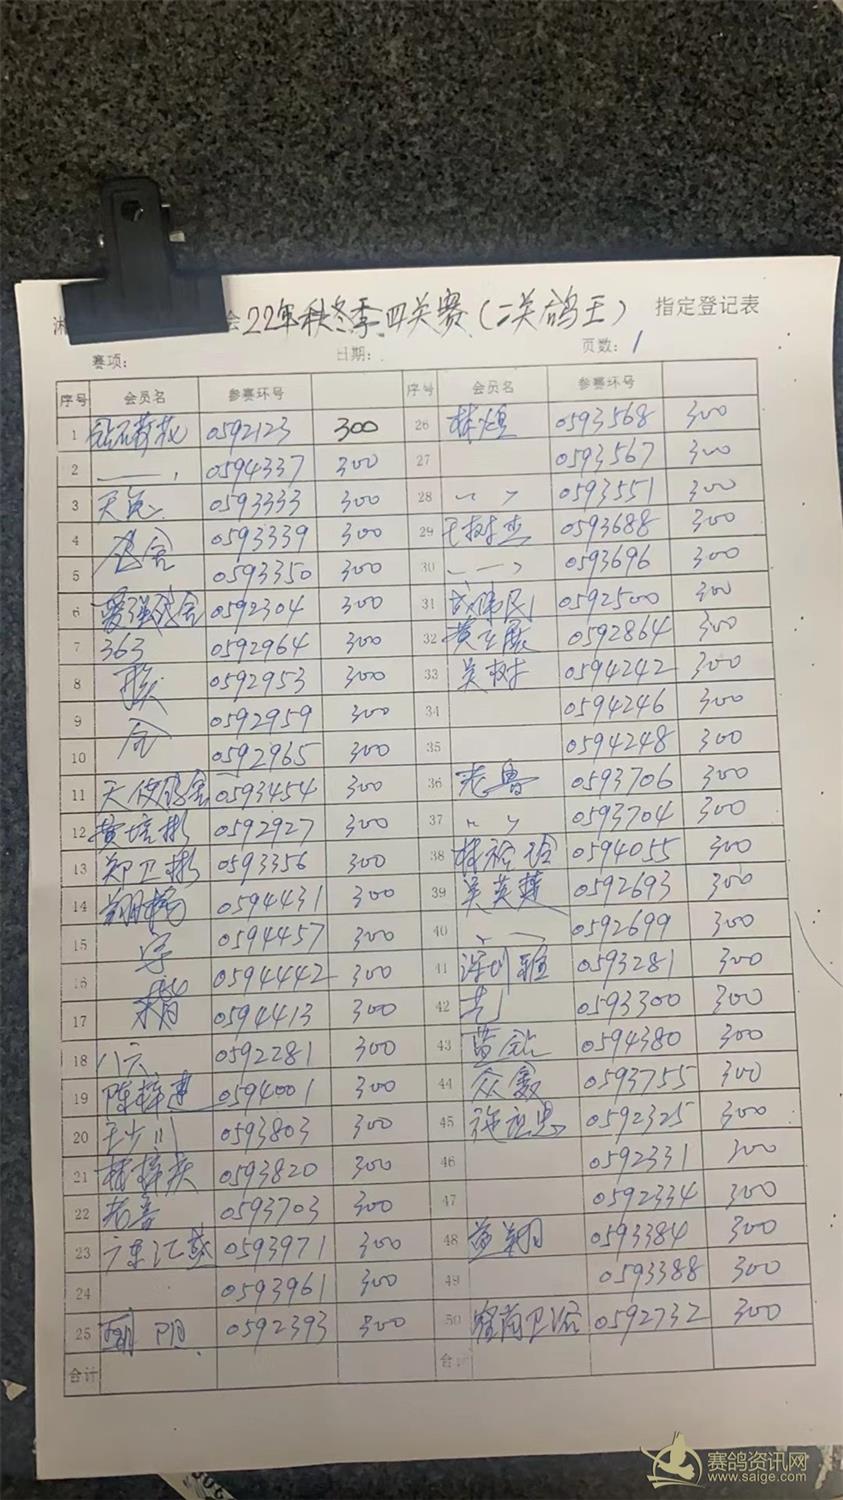 会22年秋冬季四关赛(二关鸽王) 指定登记表
赛项: 日期: 页数: 1
序号 会员名 参赛环号 序号 会员名 参赛环号
1 0592123 300 26 林煌 0593568 300
2 0594337 300 27 0593567 300
3 0593333 300 28 〃 0593551 300
4 0593339 300 29 王树杰 0593688 300
5 0593350 300 30 0593696 300
6 0592304 300 31 0592500 300
7 363 0592964 300 32 0592864 300
8 0592953 300 33 吴树 0594242 300
9 0592959 300 34 0594246 300
10 0592965 300 35 0594248 300
11 天使鸽舍 0593454 300 36 老鲁 0593706 300
12 黄培彬 0592927 300 37 〃 0593704 300
13 郑卫彬 0593356 300 38 0594055 300
14 0594431 300 39 吴英莲 0592693 300
15 0594457 300 40 0592699 300
16 0594442 300 41 深圳 0593281 300
17 0594413 300 42 0593300 300
18 八六 0592281 300 43 蓝钻 0594380 300
19 0594001 300 44 众鑫 0593755 300
20 王少川 0593803 300 45 0592325 300
21 0593820 300 46 0592331 300
22 0593703 300 47 0592334 300
23 广东汇 0593971 300 48 0593384 300
24 0593961 300 49 0593388 300
25 阳 0592393 300 50 卫浴 0592732 300
合计 合计
赛鸽资讯网
www.saige.com